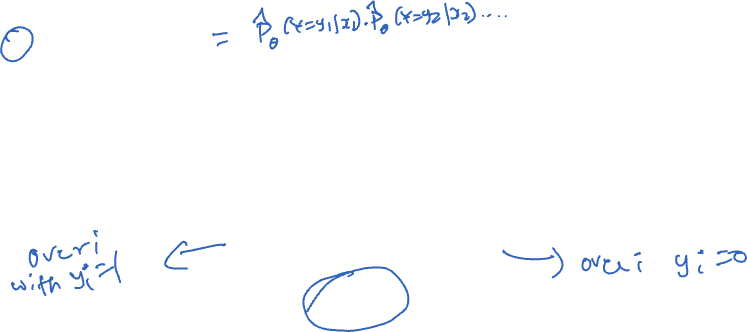 = P̂_θ(Y=y₁|x₁).P̂_θ(Y=y₂|x₂)....
over i
with yᵢ=1
over i yᵢ=0